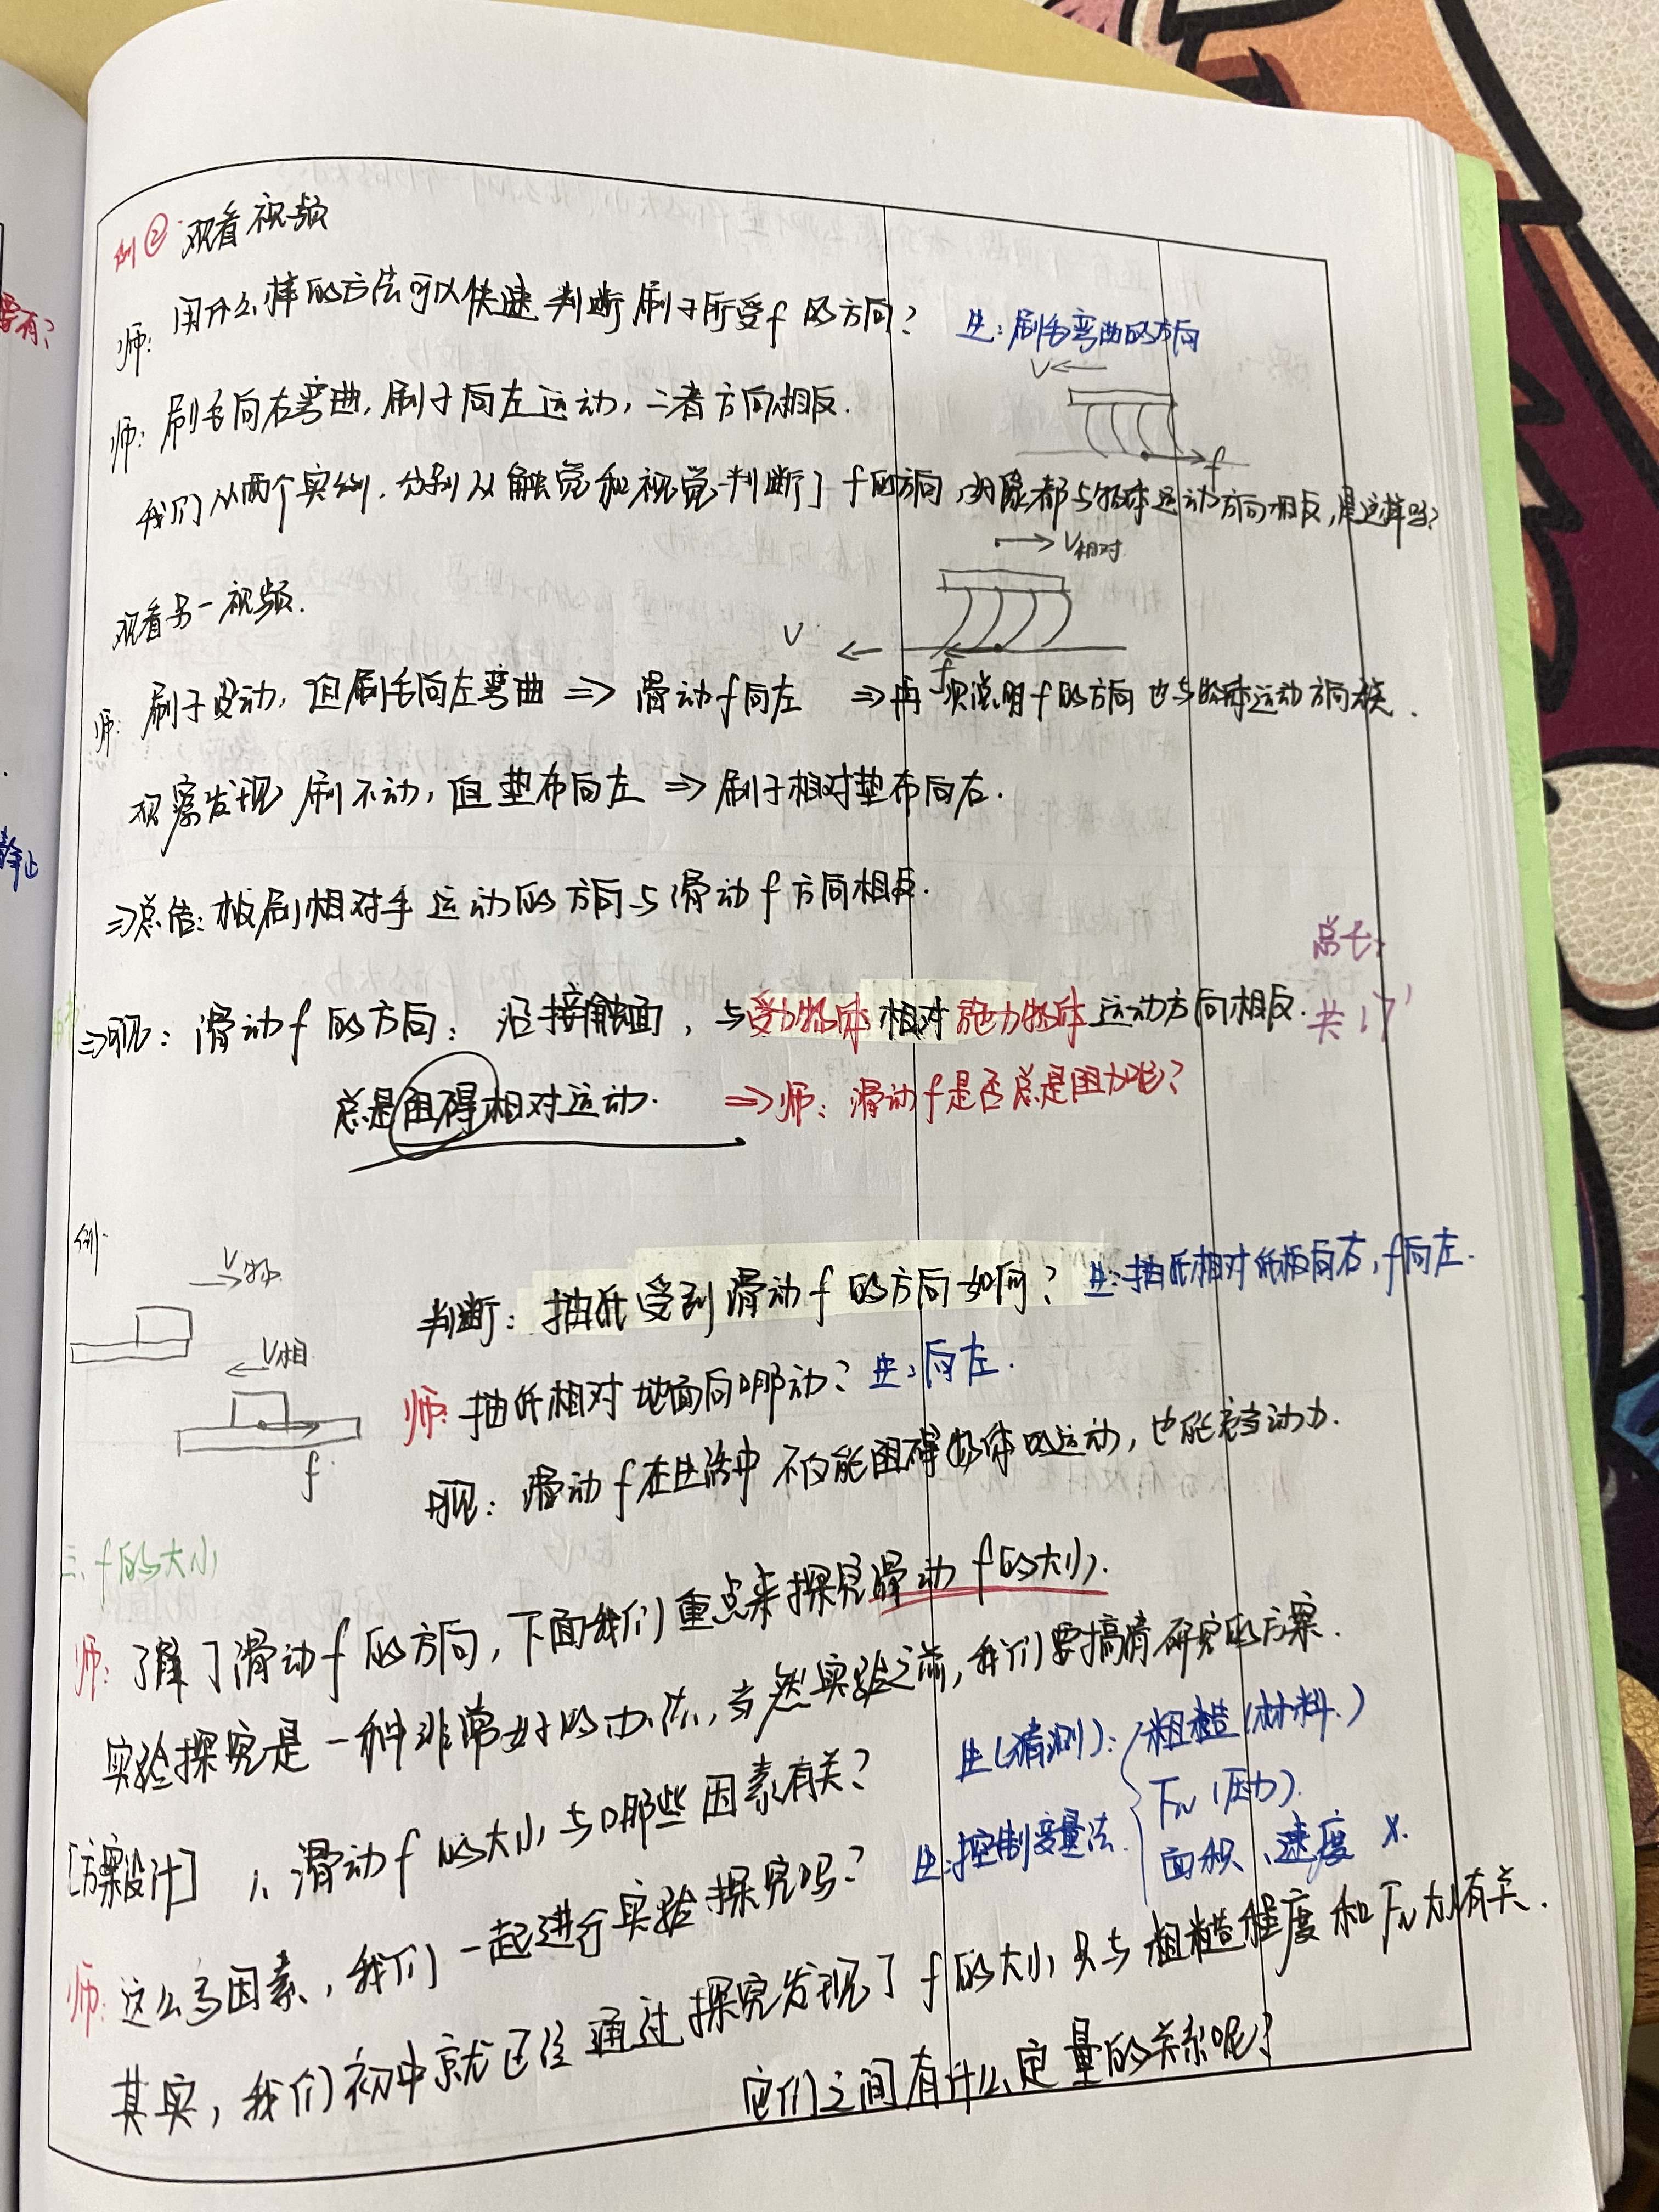 例② 观看视频
师: 用什么样的方法可以快速判断刷子所受f的方向? 生: 刷毛弯曲的方向
V
师: 刷毛向右弯曲, 刷子向左运动, 二者方向相反.
f
我们从两个实例, 分别从触觉和视觉判断了f的方向, 好像都与物体运动方向相反, 是这样吗?
V相对
观看另一视频.
V
f
师: 刷子没动, 但刷毛向左弯曲 ⇒ 滑动f向左 ⇒再次说明f的方向也与物体运动方向无关.
观察发现 刷不动, 但垫布向左 ⇒ 刷子相对垫布向右.
⇒总结: 板刷相对手运动的方向与滑动f方向相反.
⇒ : 滑动f的方向: 沿接触面, 与受力物体相对施力物体运动方向相反.
共17'
总是阻碍相对运动. ⇒师: 滑动f是否总是阻力呢?
例.
V物
判断: 抽纸受到滑动f的方向如何? 生: 抽纸相对纸板向右, f向左.
V相
f
师: 抽纸相对地面向哪动? 生: 向左.
: 滑动f在生活中不仅能阻碍物体的运动, 也能充当动力.
三. f的大小
师: 了解了滑动f的方向, 下面我们重点来探究滑动f的大小.
实验探究是一种非常好的办法, 当然实验之前, 我们要搞清研究的方案.
[方案设计] 1、滑动f的大小与哪些因素有关? 生(猜测): 粗糙(材料)
FN (压力).
面积、速度 ×.
师: 这么多因素, 我们一起进行实验探究吗? 生: 控制变量法.
其实, 我们初中就已经通过探究发现了f的大小只与粗糙程度和FN大小有关.
它们之间有什么定量的关系呢?
要有?
静止